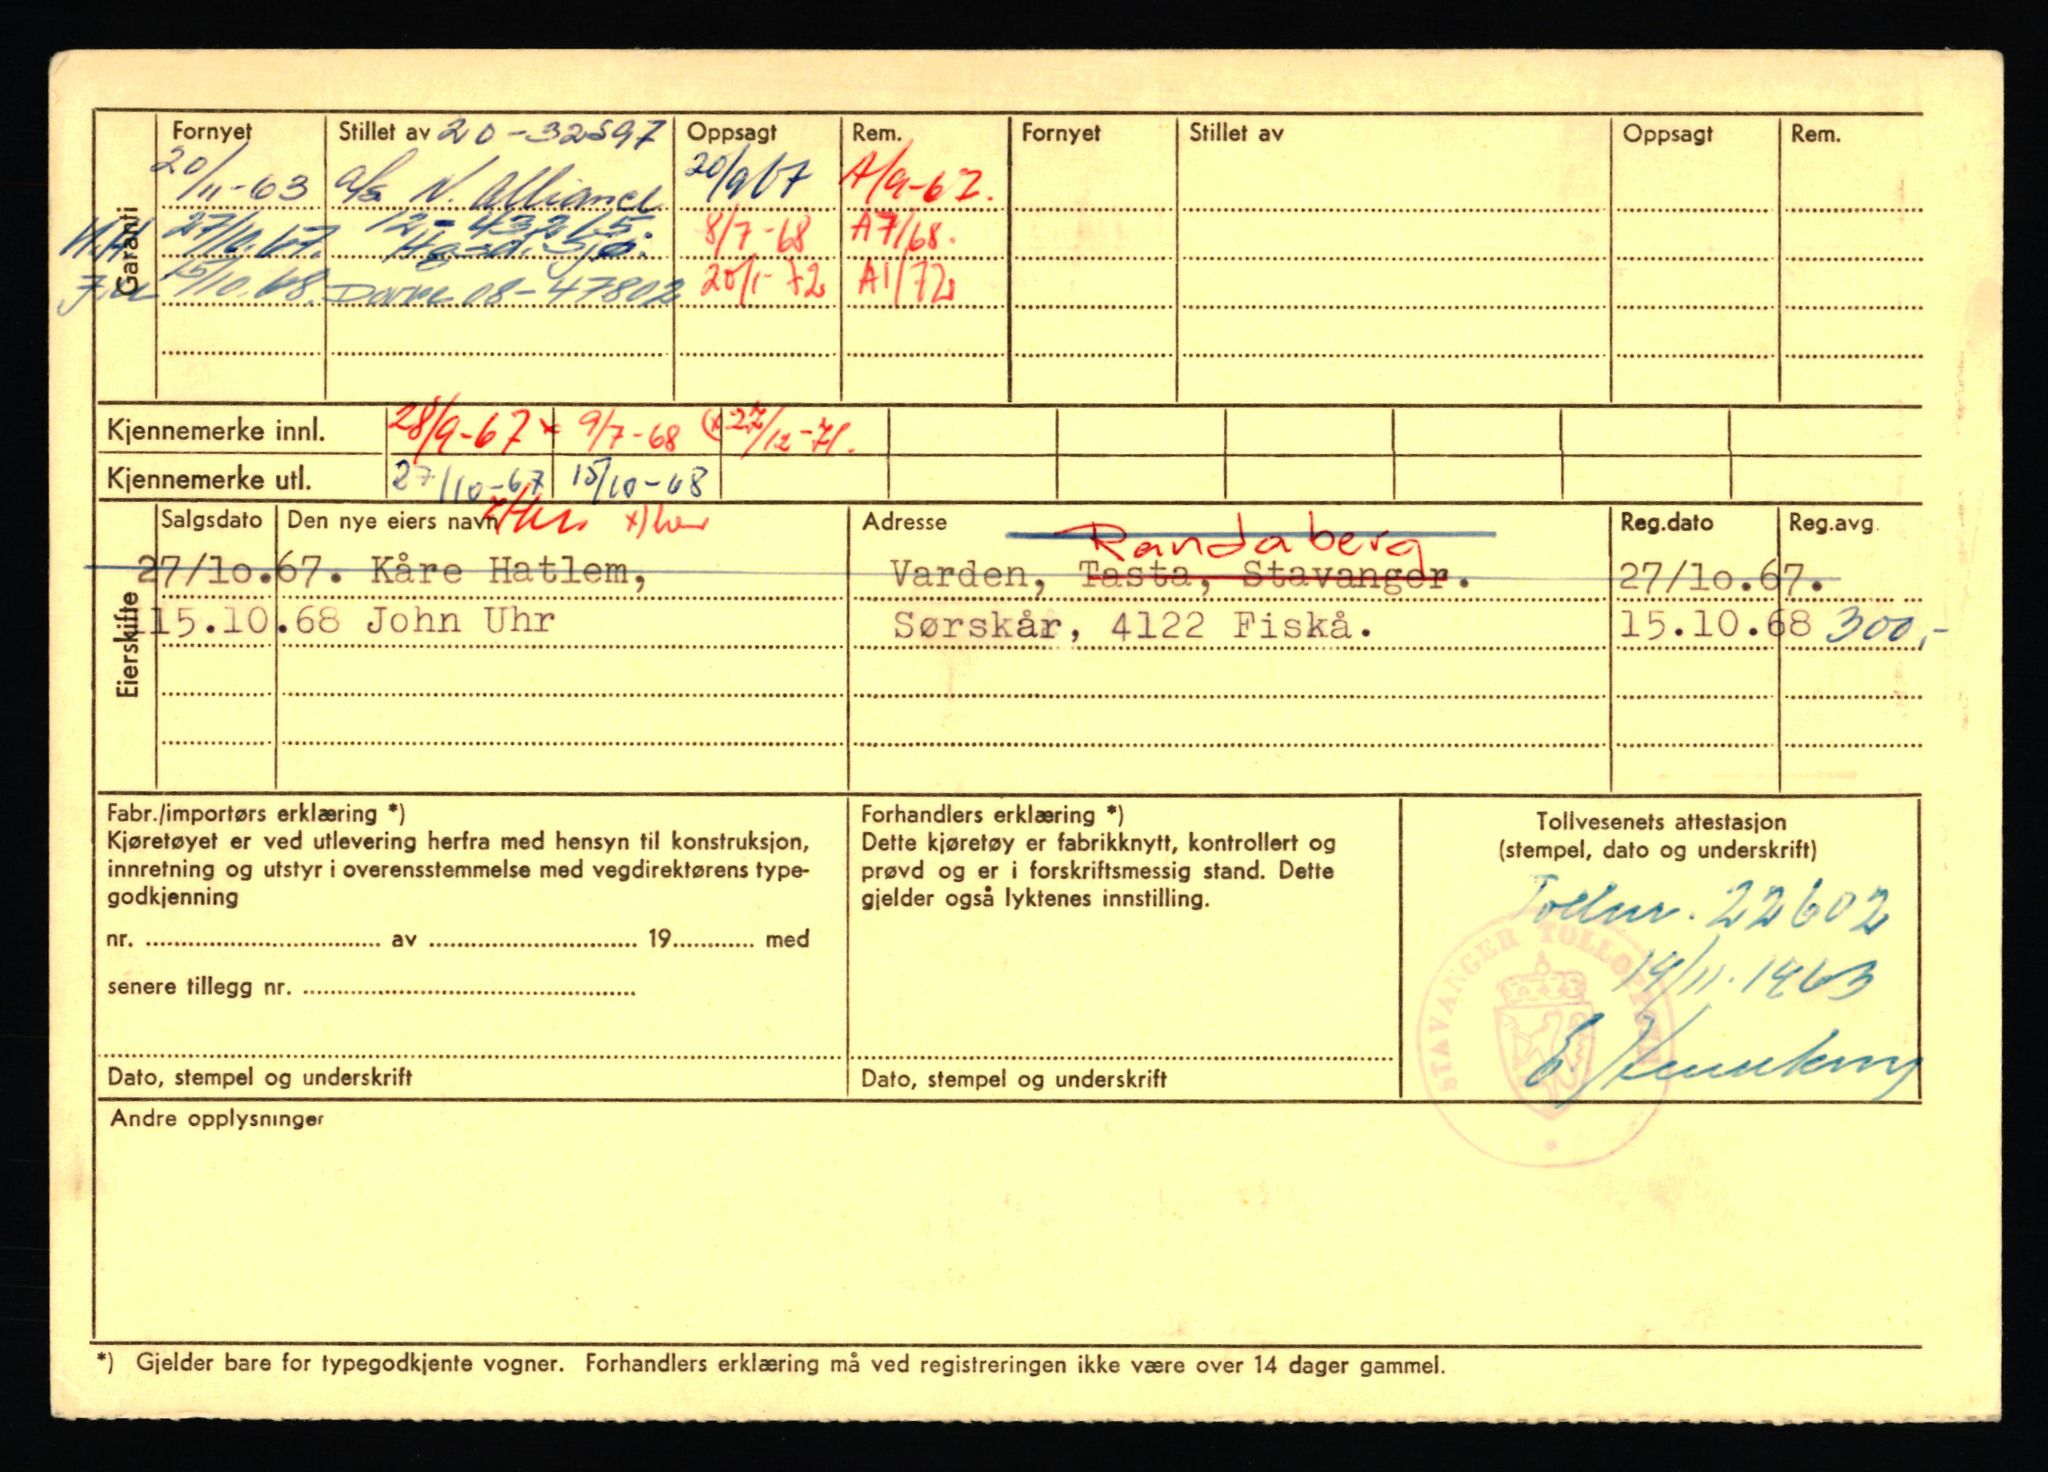 Fornyet Stillet av 20-32597 Oppsagt Rem. Fornyet Stillet av Oppsagt Rem.
20/11-63 a/s N. Alliance 20/9 67 A/9-67.
Garanti
27/10.67. 12-43215. 8/7-68 A7/68.
15/10.68. Dovre 08-47802 20/1-72 A1/72
Kjennemerke innl. 28/9-67 9/7-68 (x 27/12-71.
Kjennemerke utl. 27/10-67 15/10-68
Eierskifte
Salgsdato Den nye eiers navn Adresse Reg.dato Reg.avg.
Randaberg
27/10.67. Kåre Hatlem, Varden, Tasta, Stavanger. 27/10.67.
15.10.68 John Uhr Sørskår, 4122 Fiskå. 15.10.68 300,-
Fabr./importørs erklæring *)
Kjøretøyet er ved utlevering herfra med hensyn til konstruksjon,
innretning og utstyr i overensstemmelse med vegdirektørens type-
godkjenning
nr. av 19 med
senere tillegg nr.
Dato, stempel og underskrift
Forhandlers erklæring *)
Dette kjøretøy er fabrikknytt, kontrollert og
prøvd og er i forskriftsmessig stand. Dette
gjelder også lyktenes innstilling.
Dato, stempel og underskrift
Tollvesenets attestasjon
(stempel, dato og underskrift)
Tollnr. 22602
19/11.1963
STAVANGER
Andre opplysninger
*) Gjelder bare for typegodkjente vogner. Forhandlers erklæring må ved registreringen ikke være over 14 dager gammel.